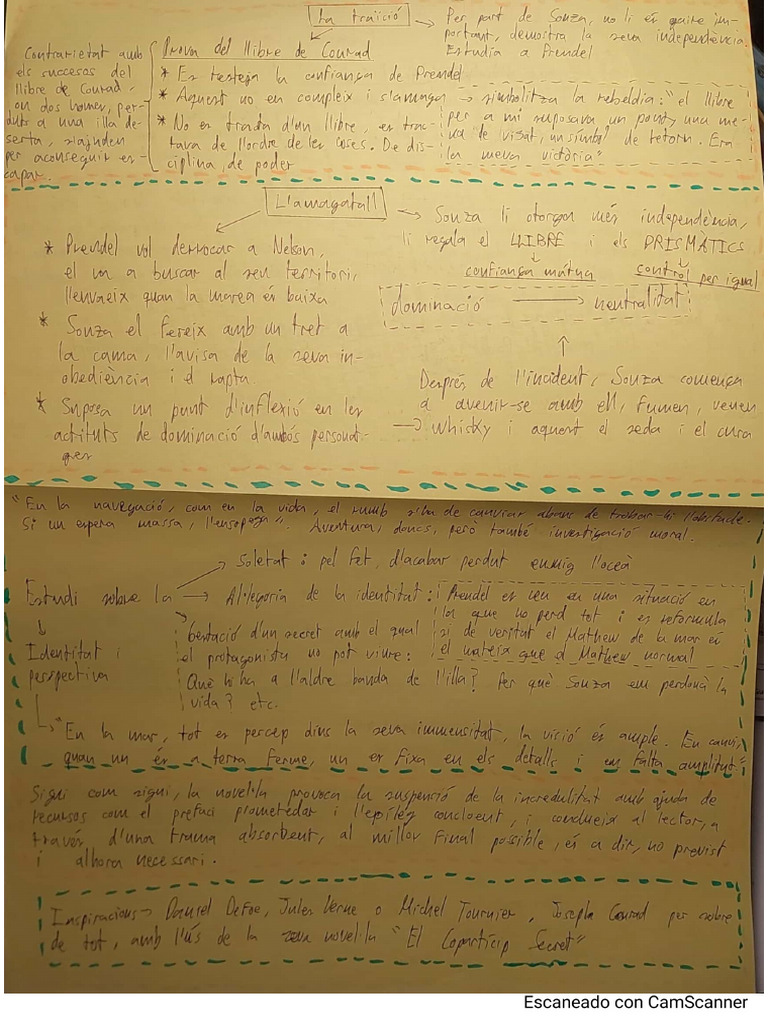 La traïció
Per part de Souza, no li és gaire im-
portant, demostra la seva independència.
Estudia a Prendel
Contrarietat amb
els successos del
llibre de Conrad,
on dos homes, per-
duts a una illa de-
serta, s'ajuden
per aconseguir es-
capar.
Prova del llibre de Conrad
* Es testeja la confiança de Prendel
* Aquest no en compleix i s'amaga → simbolitza la rebeldia: "el llibre
per a mi suposava un pont, una me-
na de visat, un símbol de retorn. Era
la meva victòria"
* No es tracta d'un llibre, es trac-
tava de l'ordre de les coses. De dis-
ciplina, de poder
L'amagatall
Souza li otorga més independència,
li regala el LLIBRE i els PRISMÀTICS
confiança mútua control per igual
dominació → neutralitat
* Prendel vol derrocar a Nelson,
el va a buscar al seu territori,
l'envaeix quan la marea és baixa
* Souza el fereix amb un tret a
la cama, l'avisa de la seva in-
obediència i el rapta.
* Suposa un punt d'inflexió en les
actituts de dominació d'ambós personat-
ges
Després de l'incident, Souza comença
a avenir-se amb ell, fumen, veuen
→ whisky i aquest el seda i el cura
"En la navegació, com en la vida, el rumb s'ha de canviar abans de trobar-hi l'obstacle.
Si un espera massa, l'ensopega". Aventura, doncs, però també investigació moral.
Soletat i pel fet, d'acabar perdut enmig l'oceà
Estudi sobre la → Al·legoria de la identitat: Prendel es veu en una situació en
la que no perd tot i es reformula
si de veritat el Mathew de la mar és
el mateix que el Mathew normal
Identitat i
perspectiva
d'un secret amb el qual
el protagonista no pot viure:
Què hi ha a l'altre banda de l'illa? Per què Souza em perdonà la
vida? etc.
"En la mar, tot es percep dins la seva immensitat, la visió és ample. En canvi,
quan un és a terra ferme, un es fixa en els detalls i en falta amplitut"
Sigui com sigui, la novel·la provoca la suspenció de la incredulitat amb ajuda de
recursos com el prefaci prometedor i l'epíleg concloent, i condueix al lector, a
través d'una trama absorbent, al millor final possible, és a dir, no previst
i alhora necessari.
Inspiracions → Daniel Defoe, Jules Verne o Michel Tournier, Joseph Conrad per sobre
de tot, amb l'ús de la seva novel·la "El Copartícip Secret"
Escaneado con CamScanner